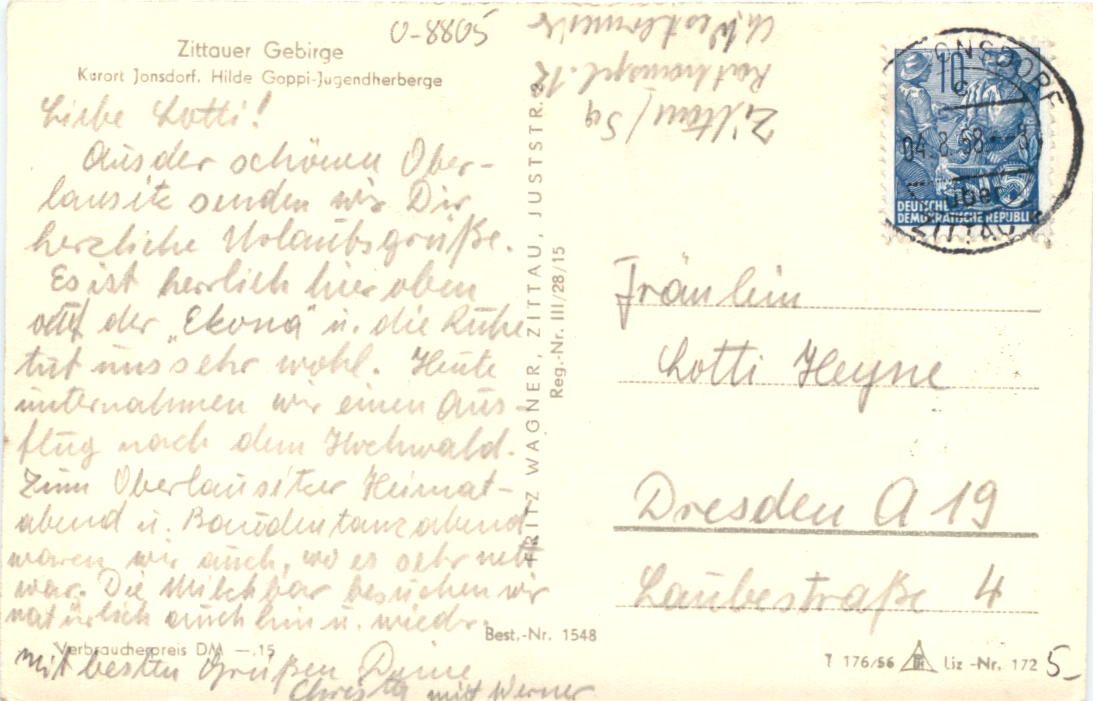 O-8805
Zittauer Gebirge
Kurort Jonsdorf. Hilde Coppi-Jugendherberge
Liebe Lotti!
Aus der schönen Ober-
lausitz senden wir Dir
herzliche Urlaubsgrüße.
Es ist herrlich hier oben
auf der „Ekona" u. die Ruhe
tut uns sehr wohl. Heute
unternahmen wir einen Aus-
flug nach dem Hochwald.
Zum Oberlausitzer Heimat-
abend u. Baudentanzabend
waren wir auch, wo es sehr nett
war. Die Milchbar besuchen wir
natürlich auch hin u. wieder.
Mit besten Grüßen Deine
Christa mit Werner
Verbraucherpreis DM —.15
Best.-Nr. 1548
FRITZ WAGNER, ZITTAU, JUSTSTR. 2
Reg.-Nr. III/28/15
Zittau/Sa
12
JONSDORF
04.8.58--8
über
ZITTAU
10
5
DEUTSCHE
DEMOKRATISCHE REPUBLIK
Fräulein
Lotti Heyne
Dresden A 19
Laubestraße 4
T 176/56
Liz.-Nr. 172
5-